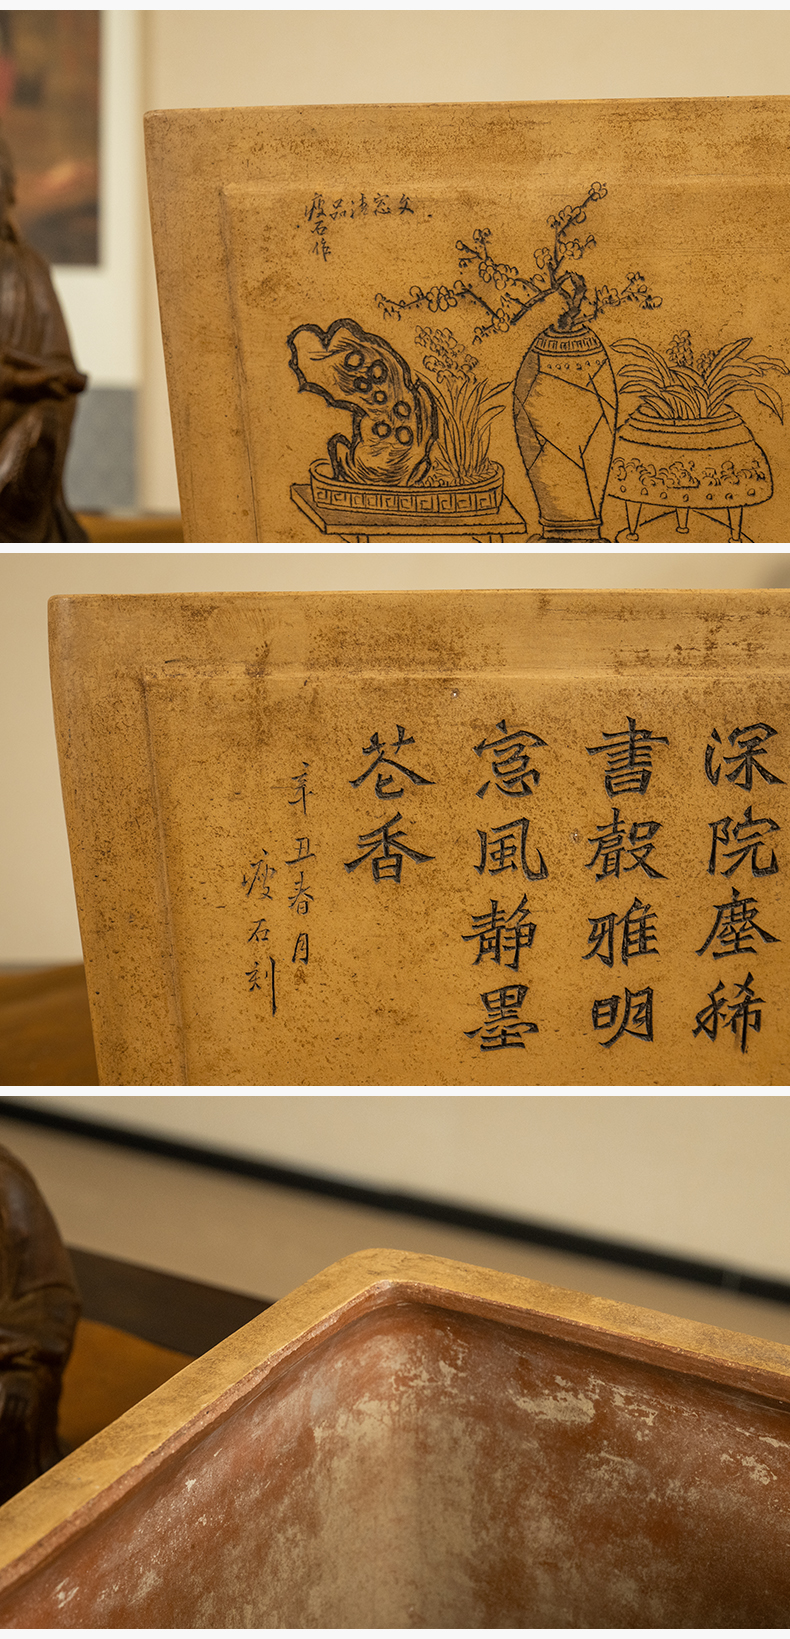 文窓清品
瘦石作
深院塵稀
書聲雅明
窓風静墨
花香
辛丑春月
瘦石刻